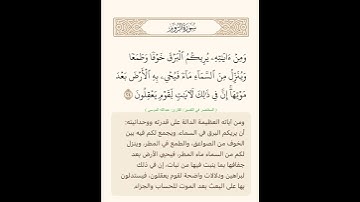 سورة الروم
وَمِنْ ءَايَـٰتِهِۦ يُرِيكُمُ ٱلْبَرْقَ خَوْفًا وَطَمَعًا
وَيُنَزِّلُ مِنَ ٱلسَّمَآءِ مَآءً فَيُحْىِۦ بِهِ ٱلْأَرْضَ بَعْدَ
مَوْتِهَآ إِنَّ فِى ذَٰلِكَ لَـَٔايَـٰتٍ لِّقَوْمٍ يَعْقِلُونَ ٢٤
ومن آياته العظيمة الدالة على قدرته ووحدانيته:
أن يريكم البرق في السماء، ويجمع لكم فيه بين
الخوف من الصواعق، والطمع في المطر، وينزل
لكم من السماء ماء المطر، فيحيي الأرض بعد
جفافها بما ينبت فيها من نبات، إن في ذلك
لبراهين ودلالات واضحة لقوم يعقلون، فيستدلون
بها على البعث بعد الموت للحساب والجزاء.